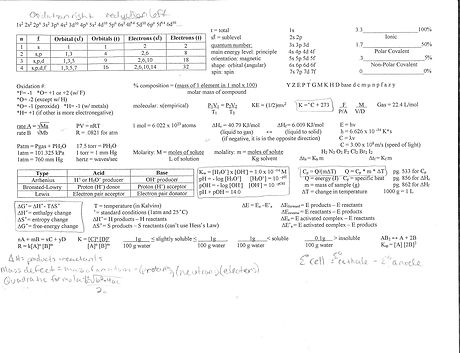 Oxidation right reduction left
1s² 2s² 2p⁶ 3s² 3p⁶ 4s² 3d¹⁰ 4p⁶ 5s² 4d¹⁰ 5p⁶ 6s² 4f¹⁴ 5d¹⁰ 6p⁶ 5f¹⁴ 6d¹⁰...
n ℓ Orbital (sℓ) Orbitals (t) Electrons (sℓ) Electrons (t)
1 s 1 1 2 2
2 s,p 1,3 4 2,6 8
3 s,p,d 1,3,5 9 2,6,10 18
4 s,p,d,f 1,3,5,7 16 2,6,10,14 32
t = total
sℓ = sublevel
quantum number:
main energy level: principle
orientation: magnetic
shape: orbital (angular)
spin: spin
1s
2s 2p
3s 3p 3d
4s 4p 4d 4f
5s 5p 5d 5f
6s 6p 6d 6f
7s 7p 7d 7f
3.3 100%
Ionic
1.7 50%
Polar Covalent
0.3 5%
Non-Polar Covalent
0 0%
Oxidation #:
*F= -1 *O= +1 or +2 (w/ F)
*O= -2 (except w/ H)
*O= -1 (peroxide) *H= -1 (w/ metals)
*H= +1 (if other is more electronegative)
% composition = (mass of 1 element in 1 mol x 100)
molar mass of compound
molecular mass: x(empirical)
P₁V₁ = P₂V₂
T₁ T₂
KE = (1/2)mv²
K = °C + 273
F M
M/A V/D
Y Z E P T G M K H D base d c m μ n p f a z y
Gas = 22.4 L/mol
rate A = √M
rate B √M
PV = nRT
R = .0821 for atm
1 mol = 6.022 x 10²³ atoms
ΔHᵥ = 40.79 KJ/mol
(liquid to gas)
(if negative, it is in the opposite direction)
ΔHf = 6.009 KJ/mol
(solid to liquid)
E = hν
h = 6.626 x 10⁻³⁴ K*s
C = λν
C = 3.00 x 10⁸ m/s (speed of light)
Patm = Pgas + PH₂O
1atm = 101.325 kPa
1atm = 760 mm Hg
17.5 torr = PH₂O
1 torr = 1 mm Hg
hertz = waves/sec
Molarity: M = moles of solute
L of solution
Molality: m = moles of solute
Kg solvent
H₂ N₂ O₂ F₂ Cl₂ Br₂ I₂
Type Acid Base
Arrhenius H⁺ or H₃O⁺ producer OH⁻ producer
Bronsted-Lowry Proton (H⁺) donor Proton (H⁺) acceptor
Lewis Electron pair acceptor Electron pair donator
pH = -log [H₃O⁺]
pOH = -log [OH⁻]
pH + pOH = 14.0
Q = energy (J)
m = mass of sample (g)
ΔT = change in temperature
pg. 533 for Cₚ
pg. 856 for heat
pg. 862 for ΔHf
1000 g = 1 L
ΔG° = ΔH° - TΔS°
ΔH° = enthalpy change
ΔS° = entropy change
ΔG° = free-energy change
T = temperature (in Kalvins)
° = standard conditions (1atm and 25°C)
ΔH° = H products – H reactants
ΔS° = S products – S reactants (can't use Hess's Law)
ΔE = Eₐ - Eₐ'
ΔE forward = E products – E reactants
ΔE reverse = E reactants – E products
Eₐ = E activated complex – E reactants
Eₐ' = E activated complex – E products
nA + mB = xC + yD
R = k[A]ⁿ [B]ᵐ
K = [C]ˣ [D]ʸ
[A]ⁿ [B]ᵐ
1g ≤ slightly soluble ≤ 1g
100 g water
≤ soluble
0.1g > insoluble
100 g water
AB₂ ↔ A + 2B
Ksp = [A] [2B]²
ΔH = products - reactants
E°cell = E°cathode - E°anode
Mass defect = mass of an atom - (protons)(neutrons)(electrons)
Quadratic formula